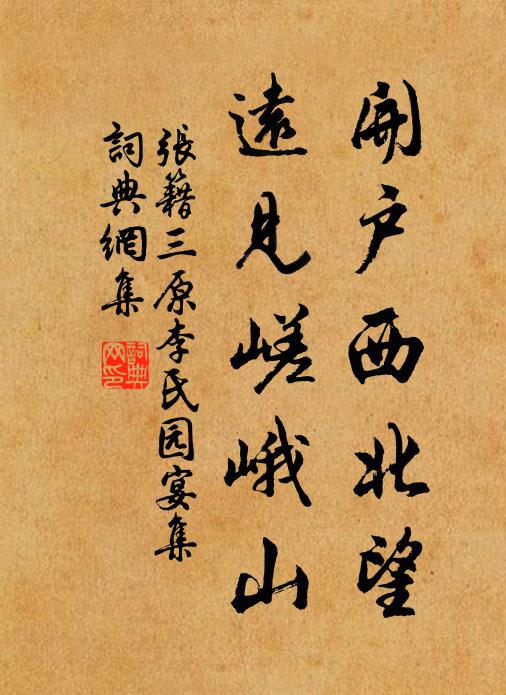 開户西北望
遠見嵯峨山
張籍三原李氏园宴集
詞典網集
詞典網印